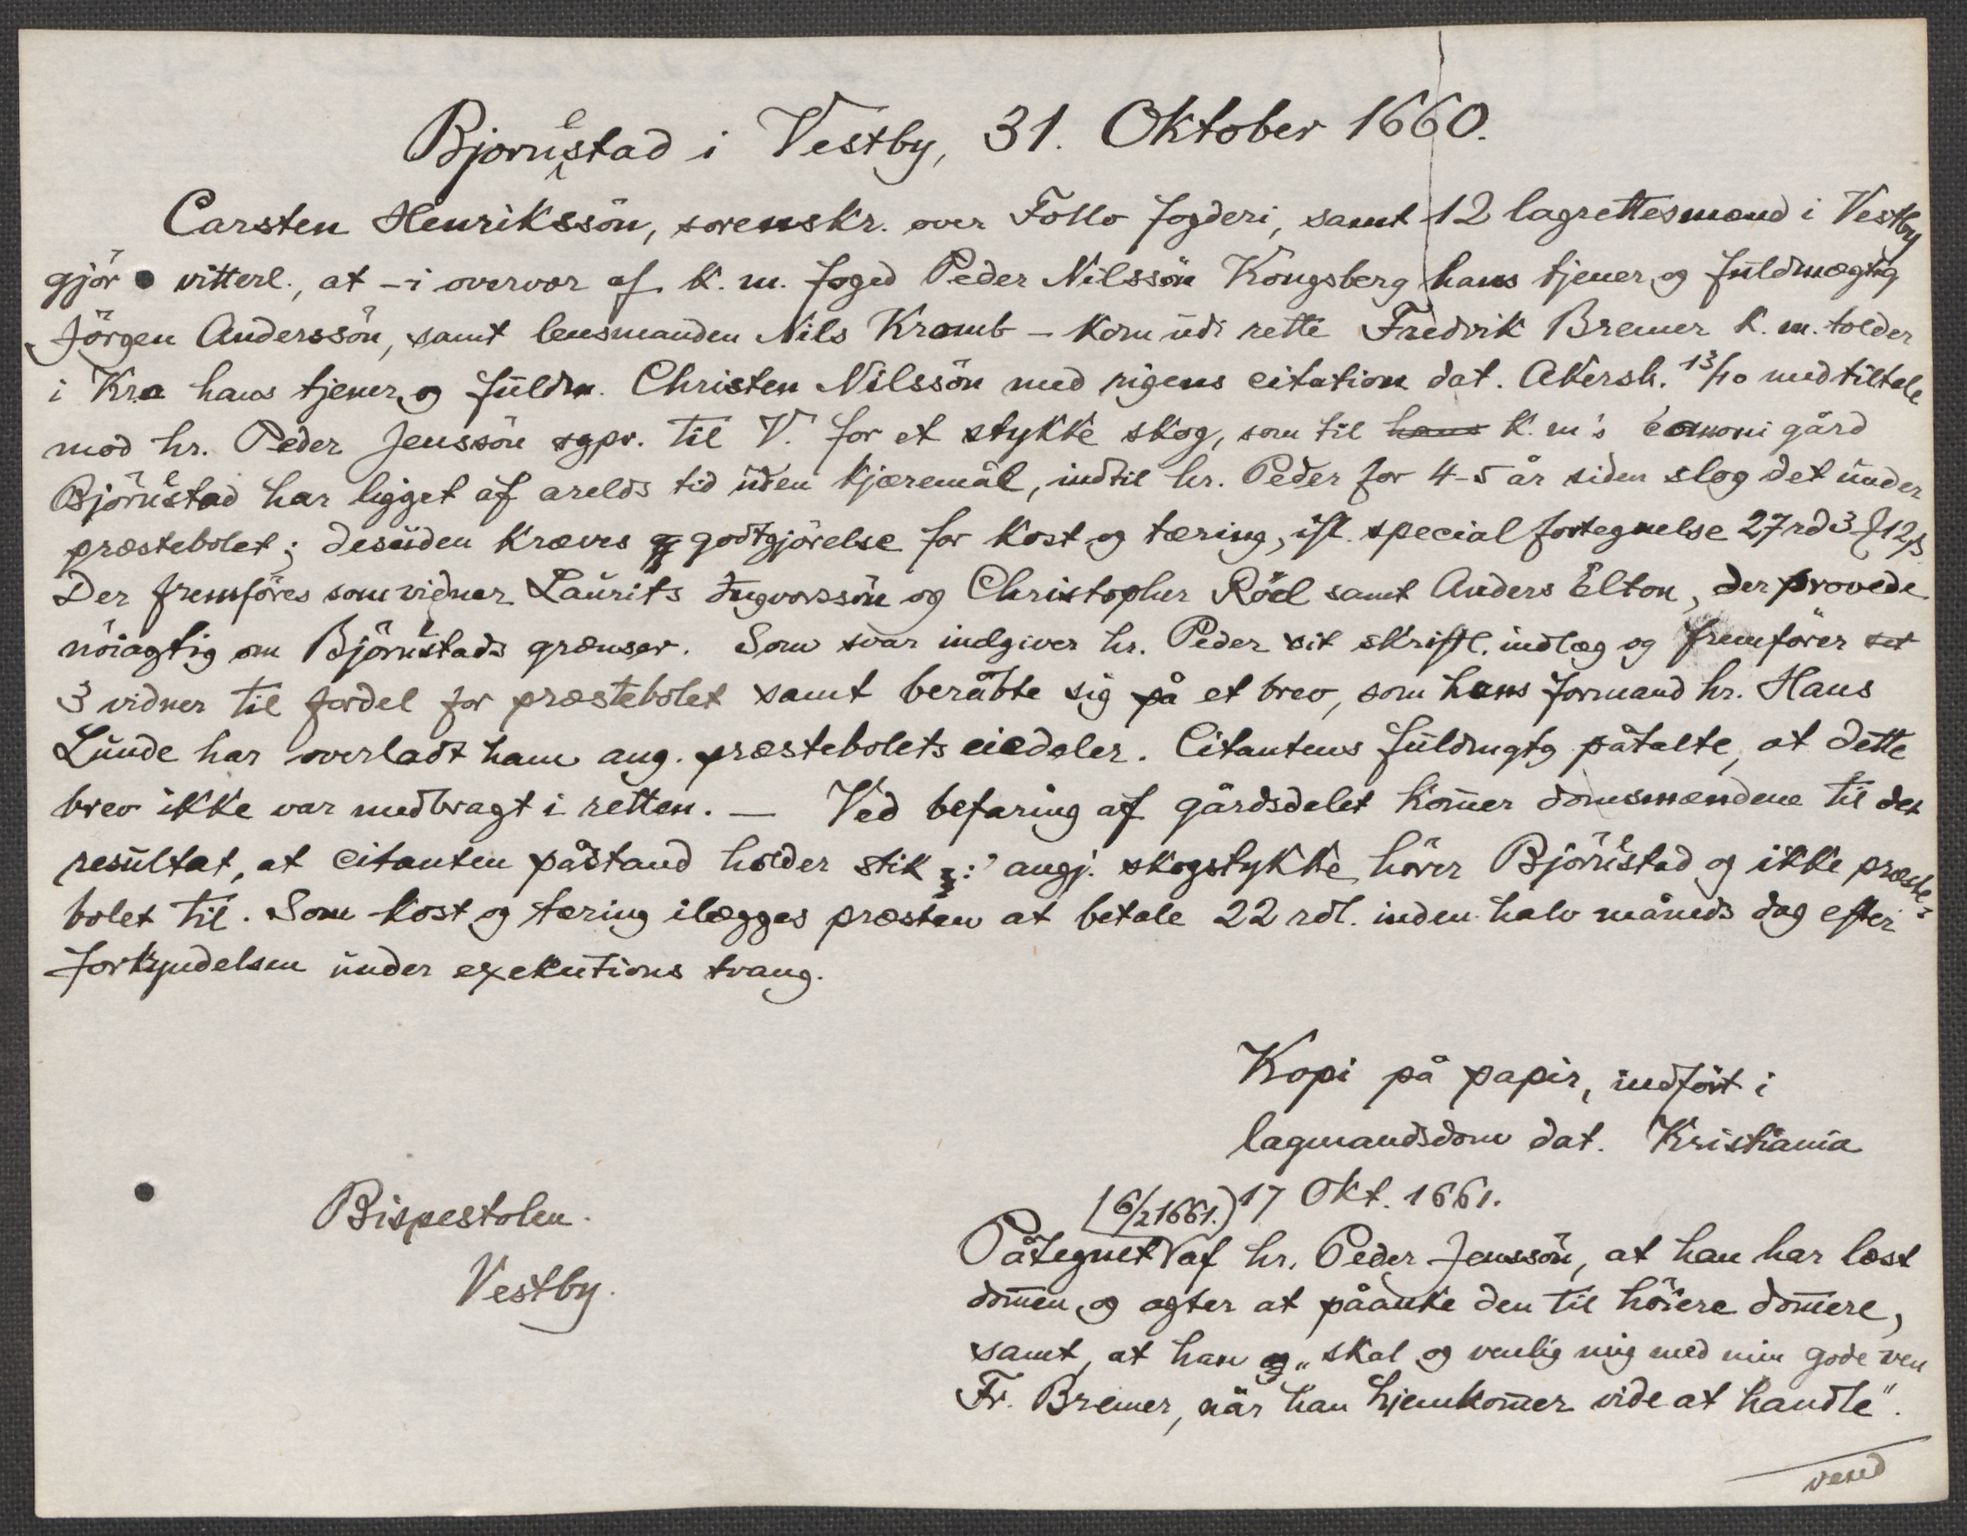 Bjornestad i Vestby, 31. Oktober 1660.
Carsten Henrikssön, sorenskr. over Follo fogderi, samt 12 lagrettesmænd i Vestby
gjör vitterl., at - i overvær af k. m. foged Peder Nilssön Kongsberg hans tjener og fuldmægtig
Jörgen Anderssön, samt lensmanden Nils Kramb - kom udi rette Fredrik Bremer k. m. tolder
i Kra hans tjener og fuldm. Christen Nilssön med rigens citation dat. Akersh. 13/10 med tiltale
mod hr. Peder Jenssön sgpr. til V. for et stykke skog, som til hans k. m's gård
Björnestad har ligget af arelds tid uden kjæremål, indtil hr. Peder for 4-5 år siden slog det under
præstebolet; desuden kræves godtgjörelse for kost og tæring, ifl. special fortegnelse 27 rd 3 ƒ 12 β
Der fremföres som vidner Laurits Ingvarssön og Christopher Röel samt Anders Elton, der provede
nöiagtig om Björnestads grænser. Som svar indgiver hr. Peder sit skriftl. indlæg og fremförer
3 vidner til fordel for præstebolet samt beråbte sig på et brev, som hans formand hr. Hans
Lunde har overladt ham ang. præstebolets eiedeler. Citantens fuldmgtg påtalte, at dette
brev ikke var medbragt i retten. — Ved befaring af gårdsdelet kom̅er domsmændene til det
resultat, at citanten påstand holder stik ɔ: angj. skogstykke hörer Björnestad og ikke præste-
bolet til. Som kost og tæring ilægges præsten at betale 22 rdl. inden halv måneds dag efter
forkyndelsen under exekutions tvang.
Kopi på papir, indfört i
lagmandsdom dat. Kristiania
17 Okt. 1661.
Bispestolen.
Vestby.
(6/2 1661.)
Påtegnet af hr. Peder Jenssön, at han har læst
dom̅en og agter at påanke den til höiere dom̅ere,
samt, at han „skal og venlig mig med min gode ven
Fr. Bremer, når han hjemkom̅er vide at handle".
vend